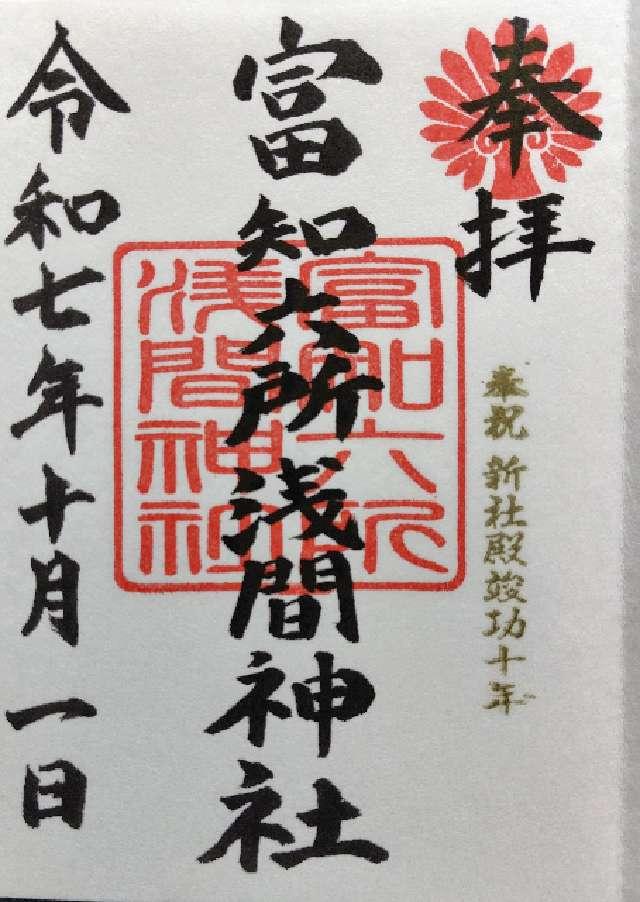 奉拝
奉祝 新社殿竣功十年
富知六所浅間神社
富知六所
浅間神社
令和七年十月一日